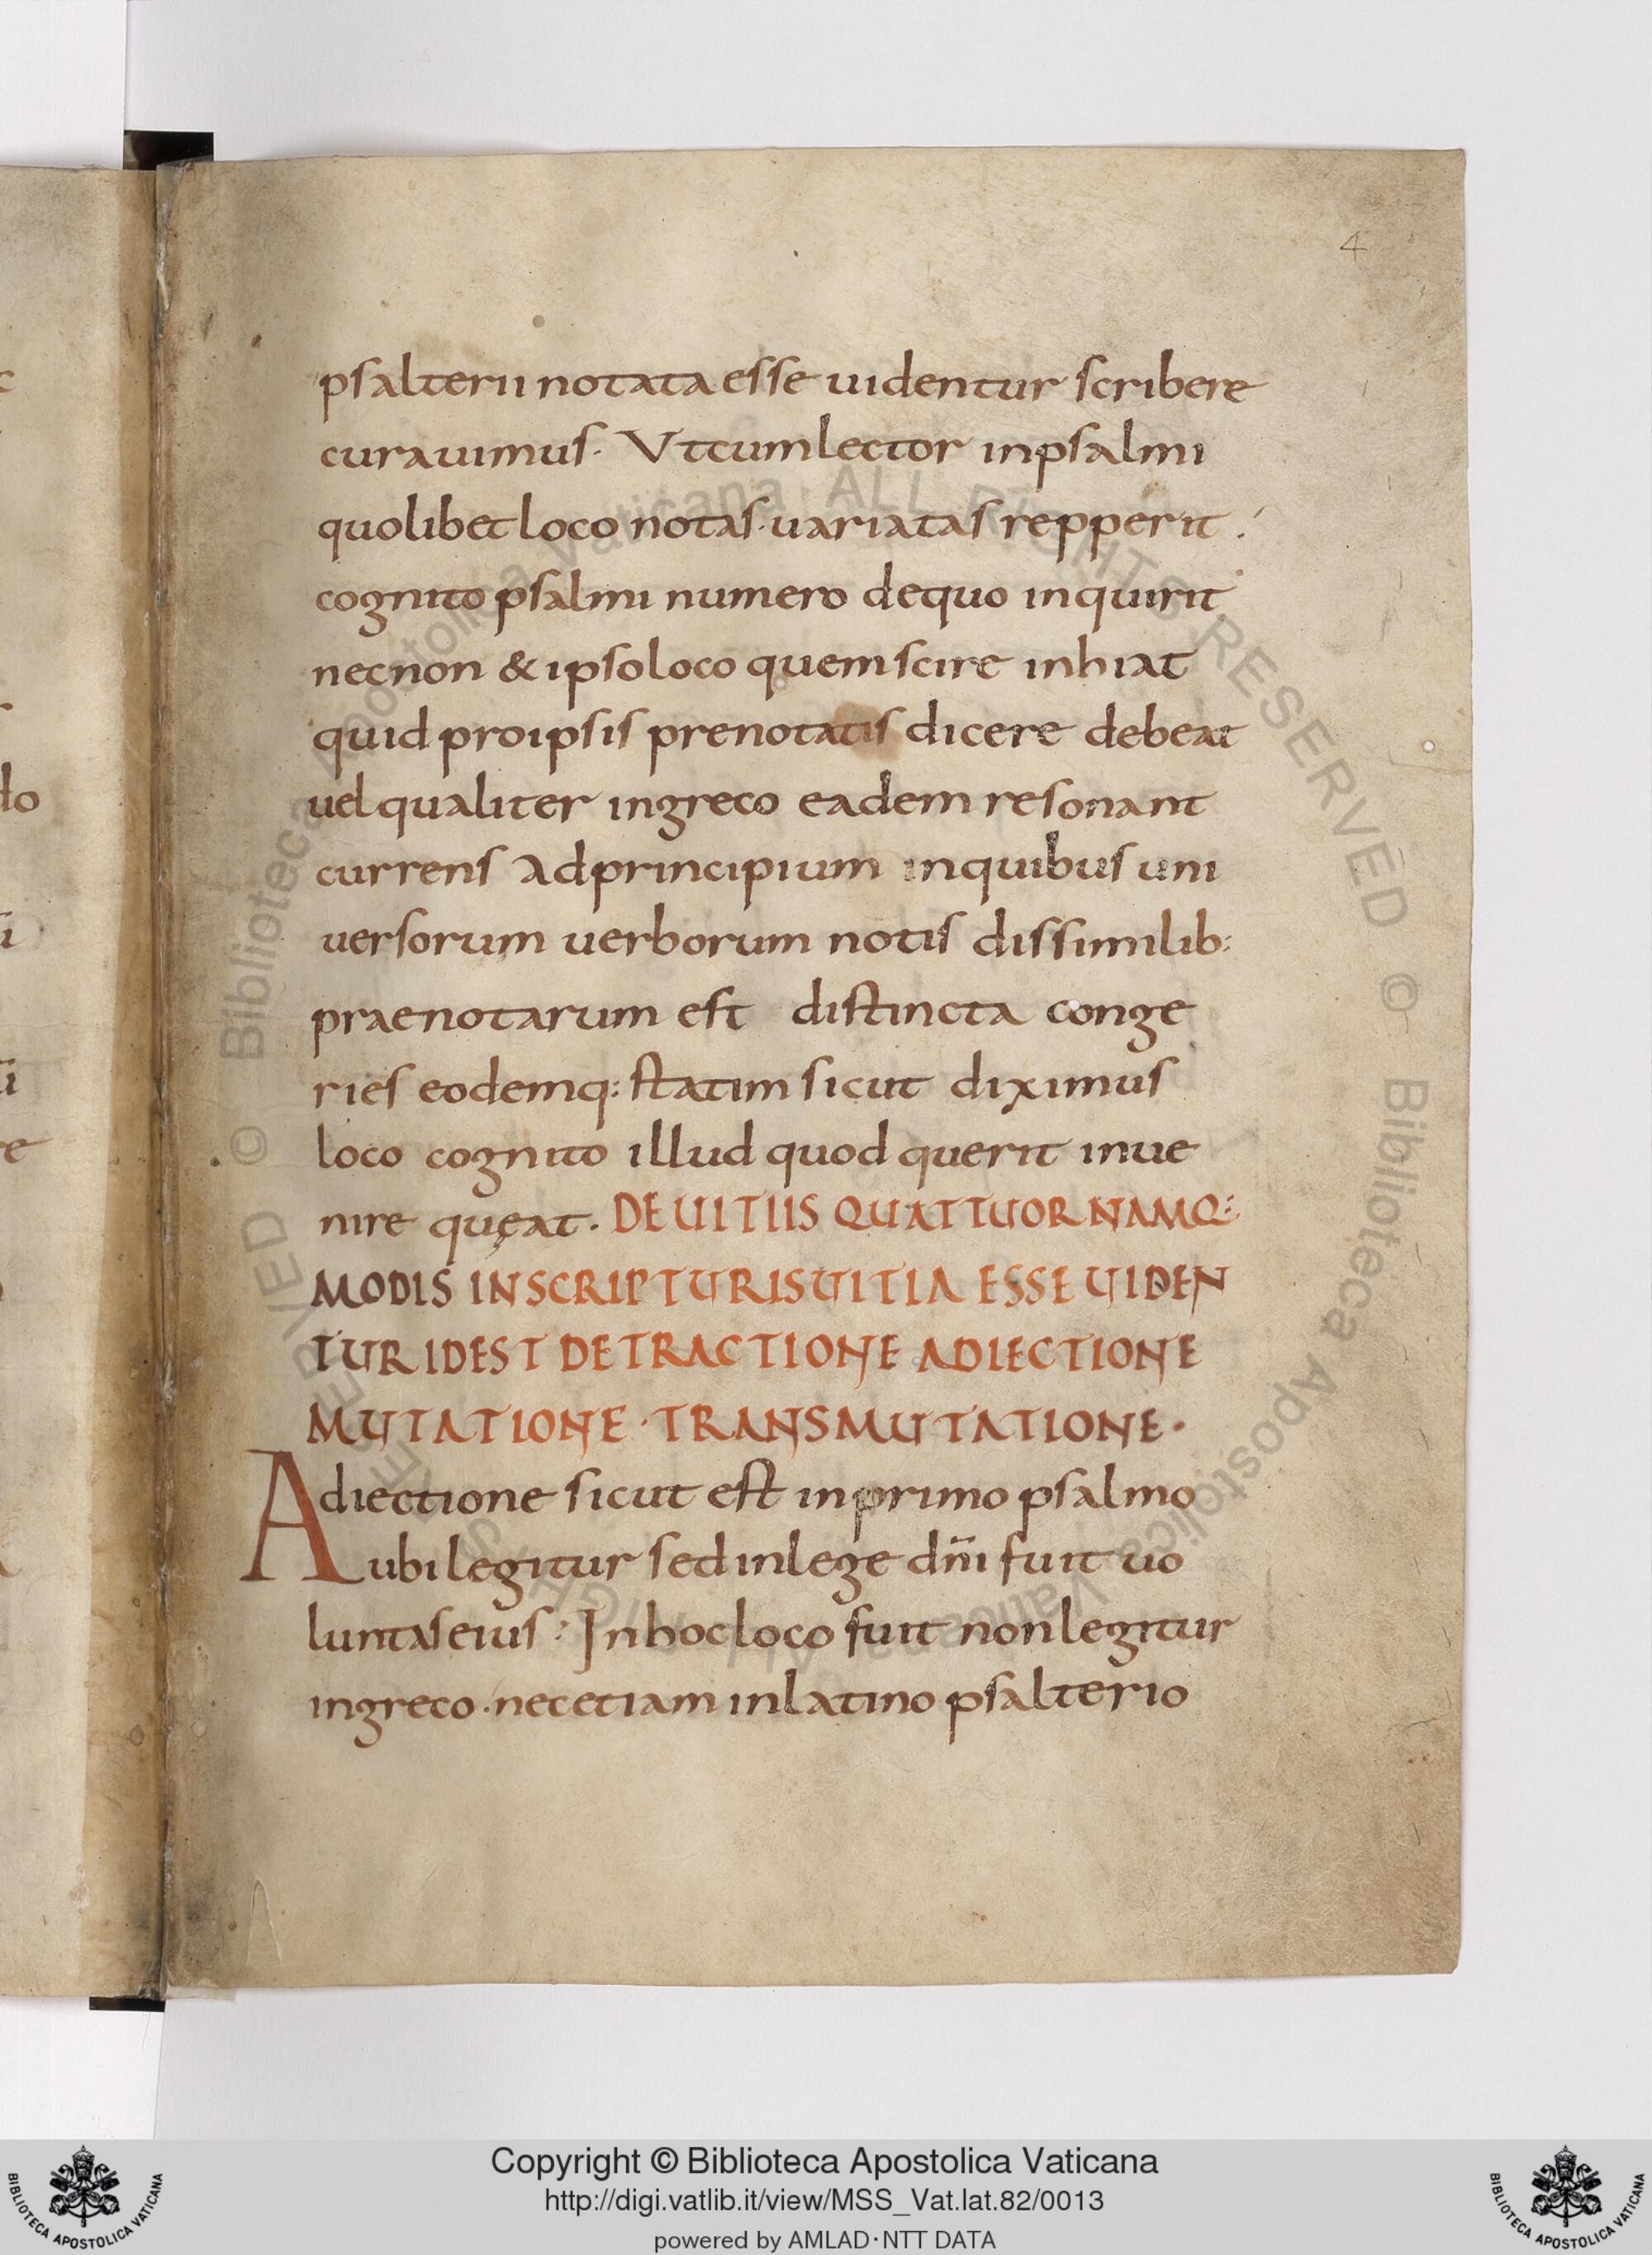 4
psalterii notata esse uidentur scribere
curauimus. Vt cum lector in psalmi
quolibet loco notas. uariatas repperit.
cognito psalmi numero de quo inquirit
necnon & ipso loco quem scire inhiat
quid pro ipsis prenotatis dicere debeat
uel qualiter in greco eadem resonant
currens ad principium in quibus uni
uersorum uerborum notis dissimilib:
praenotarum est distincta conge
ries eodemq: statim sicut diximus
loco cognito illud quod querit inue
nire quęat. DE UITIIS QUATTUOR NAMQ:
MODIS IN SCRIPTURIS UITIA ESSE UIDEN
TUR ID EST DETRACTIONE ADIECTIONE
MUTATIONE · TRANSMUTATIONE ·
Adiectione sicut est in primo psalmo
ubi legitur sed in lege dn̄i fuit uo
luntas eius: In hoc loco fuit non legitur
in greco · nec etiam in latino psalterio
Copyright © Biblioteca Apostolica Vaticana
http://digi.vatlib.it/view/MSS_Vat.lat.82/0013
powered by AMLAD·NTT DATA
BIBLIOTECA APOSTOLICA VATICANA
BIBLIOTECA APOSTOLICA VATICANA
© Biblioteca Apostolica Vaticana ALL RIGHTS RESERVED © Biblioteca Apostolica Vaticana ALL RIGHTS RESERVED